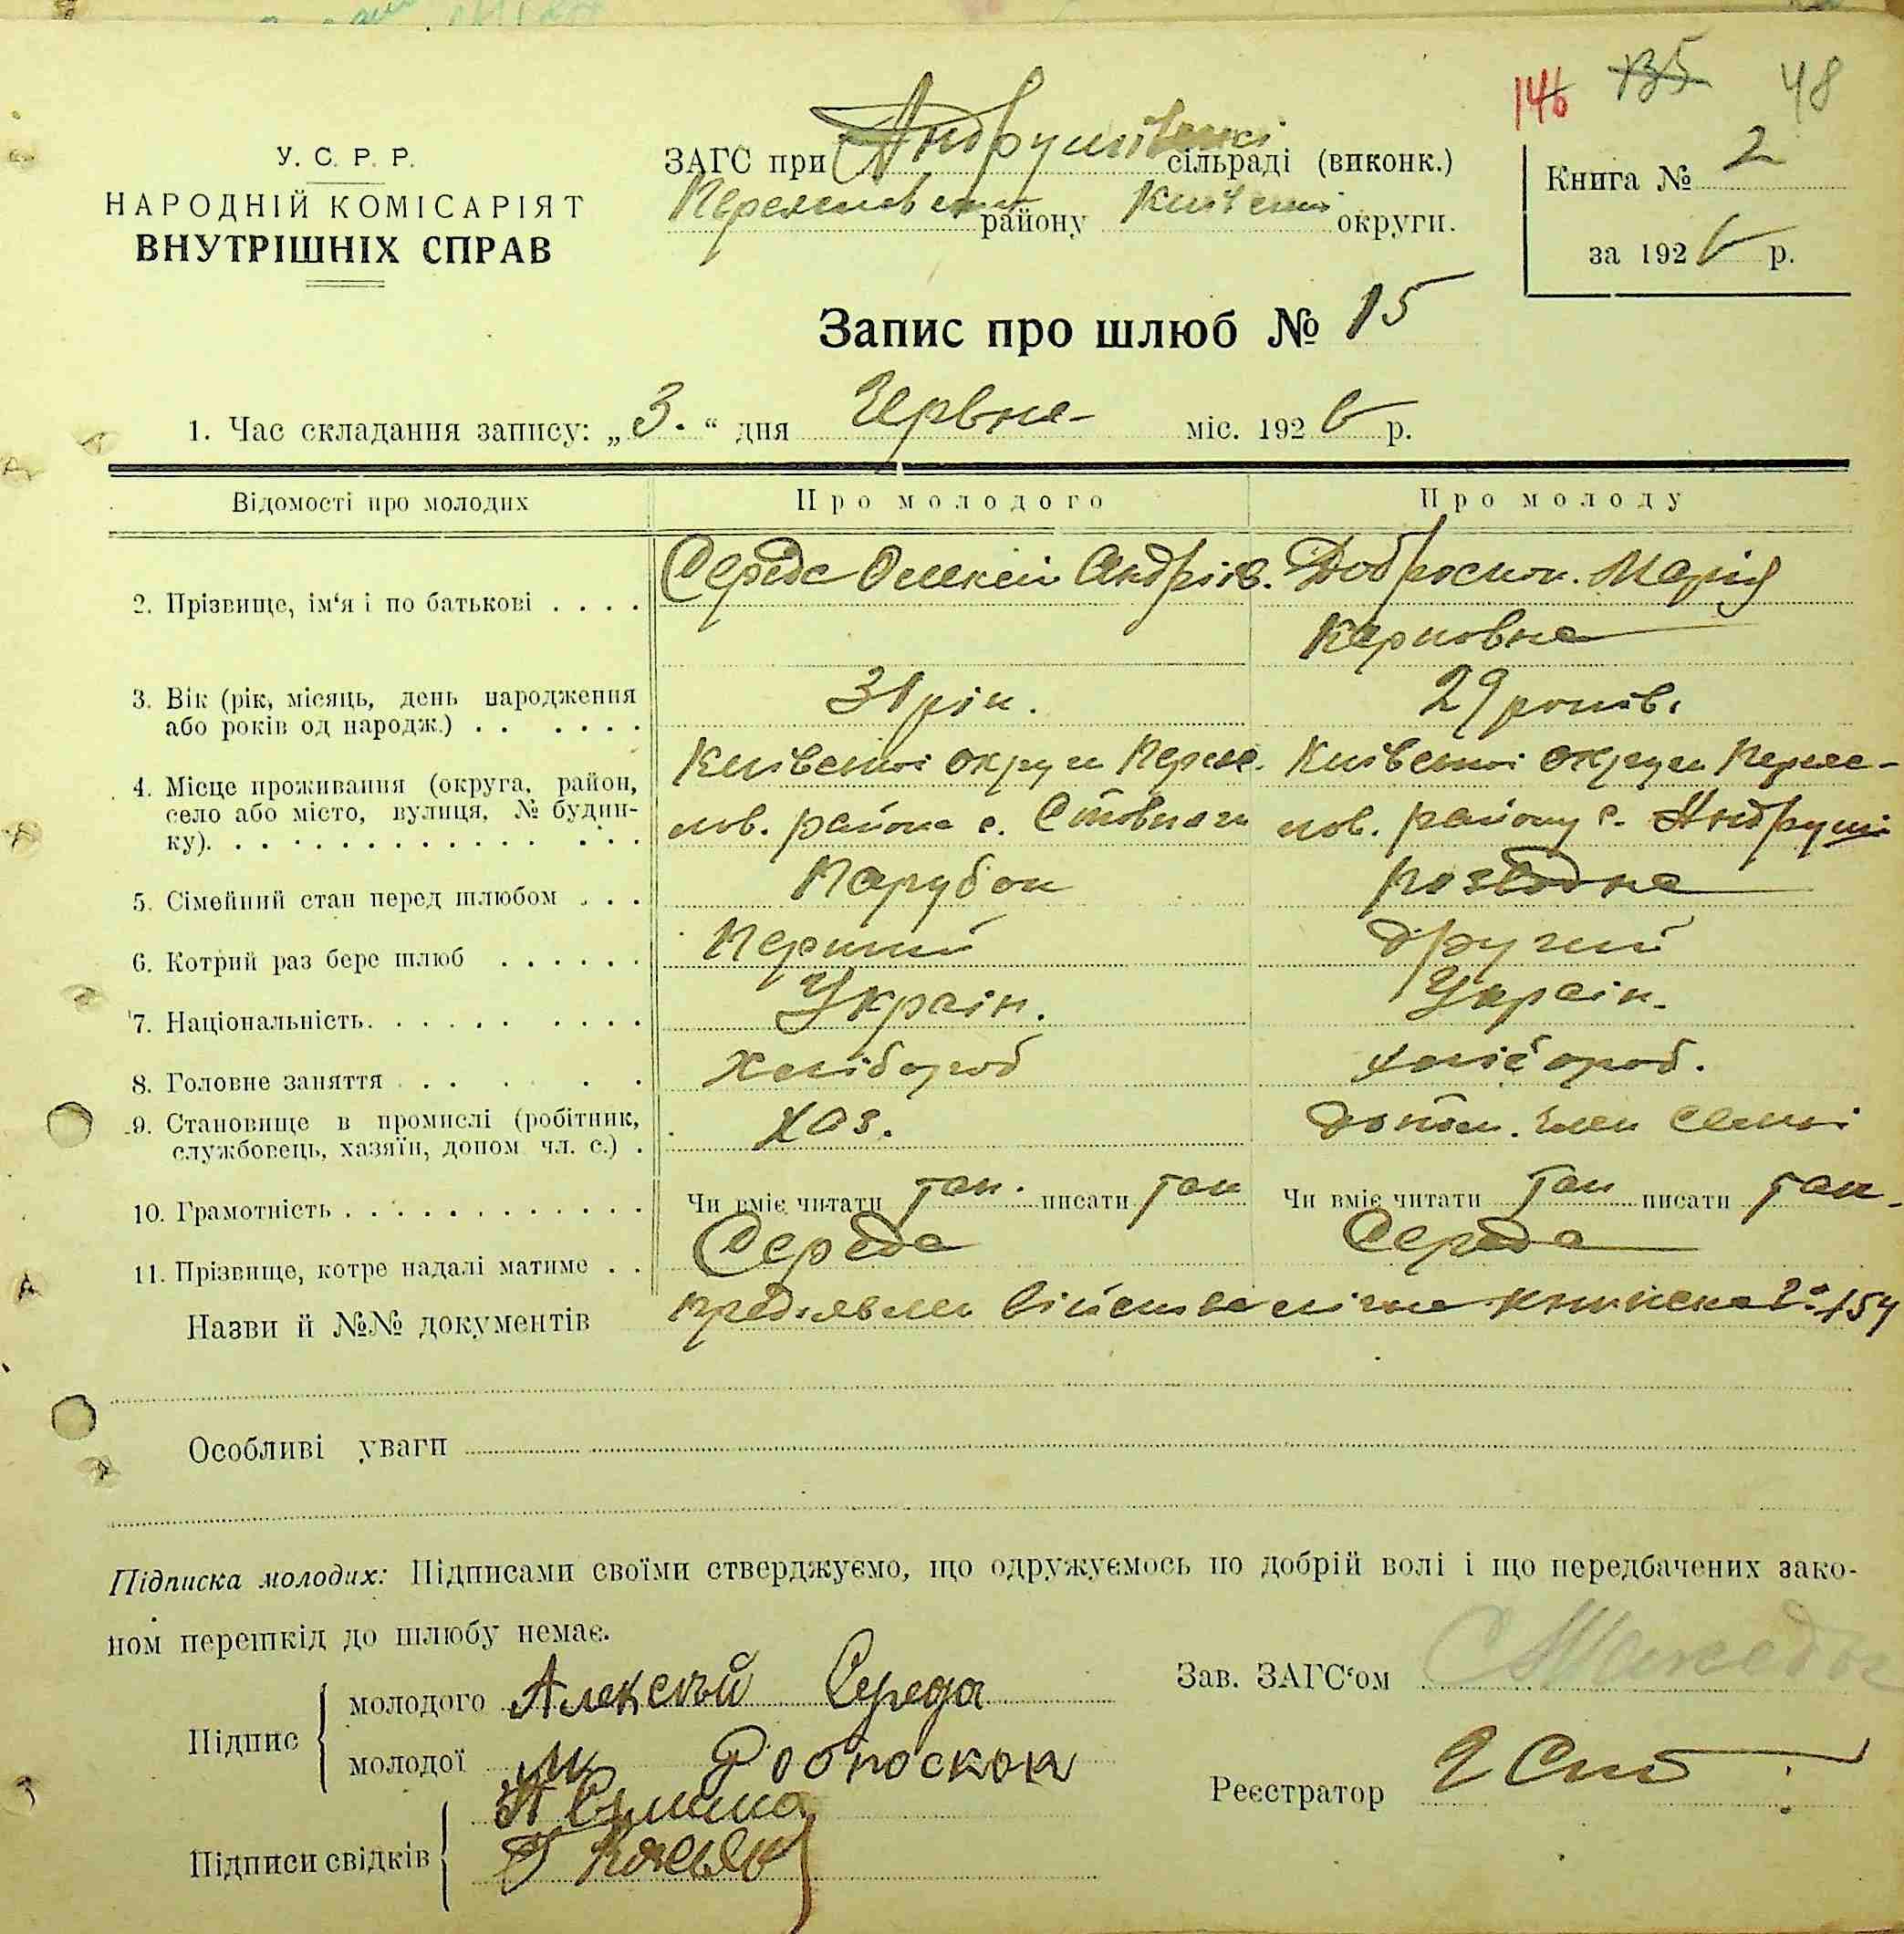 146 135 48
У. С. Р. Р.
НАРОДНІЙ КОМІСАРІЯТ
ВНУТРІШНІХ СПРАВ
ЗАГС при Андрушівській сільраді (виконк.)
району Київської округи.
Книга № 2
за 1926 р.
Запис про шлюб № 15
1. Час складання запису: „3.“ дня Червня міс. 1926 р.
Відомості про молодих
Про молодого
Про молоду
2. Прізвище, ім‘я і по батькові . . . .
Середа Олексій Андріїв.
Доброскок. Марія
Карповна
3. Вік (рік, місяць, день народження
або років од народж.) . . . . . .
31 рік.
29 років.
4. Місце проживання (округа, район,
село або місто, вулиця, № будин-
ку). . . . . . . . . . . . . . . .
Київської округи Переяс.
лов. района с. Стовпяги
Київської округи Переяс-
лов. району с. Андруші
5. Сімейний стан перед шлюбом . . .
Парубок
розводна
6. Котрий раз бере шлюб . . . . . .
Перший
другий
7. Національність. . . . . . . . . .
Украін.
Украін.
8. Головне заняття . . . . . .
Хлібороб
хлібороб.
9. Становище в промислі (робітник,
службовець, хазяїн, допом чл. с.) .
хаз.
допом. член семьі
10. Грамотність . . . . . . . . . . . .
Чи вміє читати так. писати так
Чи вміє читати так писати так.
11. Прізвище, котре надалі матиме . .
Середа
Середа
Назви й №№ документів
книжка 154
Особливі уваги
Підписка молодих: Підписами своїми стверджуємо, що одружуємось по добрій волі і що передбачених зако-
ном перешкід до шлюбу немає.
Підпис
молодого Алексѣй Середа
молодої М Доброскок
Зав. ЗАГС‘ом
Реєстратор
Підписи свідків